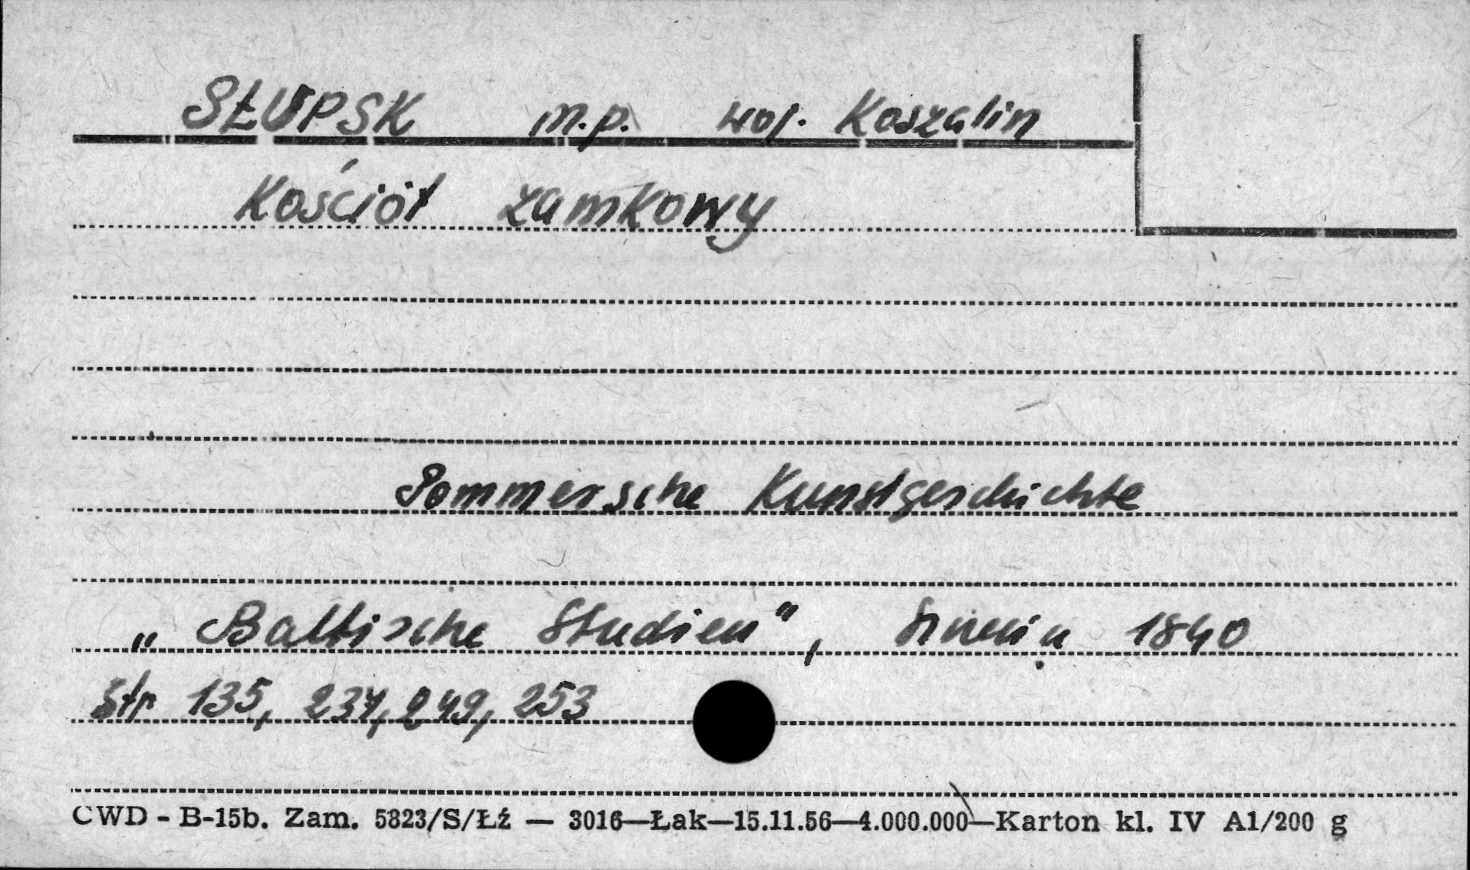 SŁUPSK m.p. woj. Koszalin
Kościół zamkowy
Pommersche Kunstgeschichte
„Baltische Studien", 1840
Str 135, 237, 249, 253
CWD - B-15b. Zam. 5823/S/Łź — 3016—Łak—15.11.56—4.000.000—Karton kl. IV A1/200 g